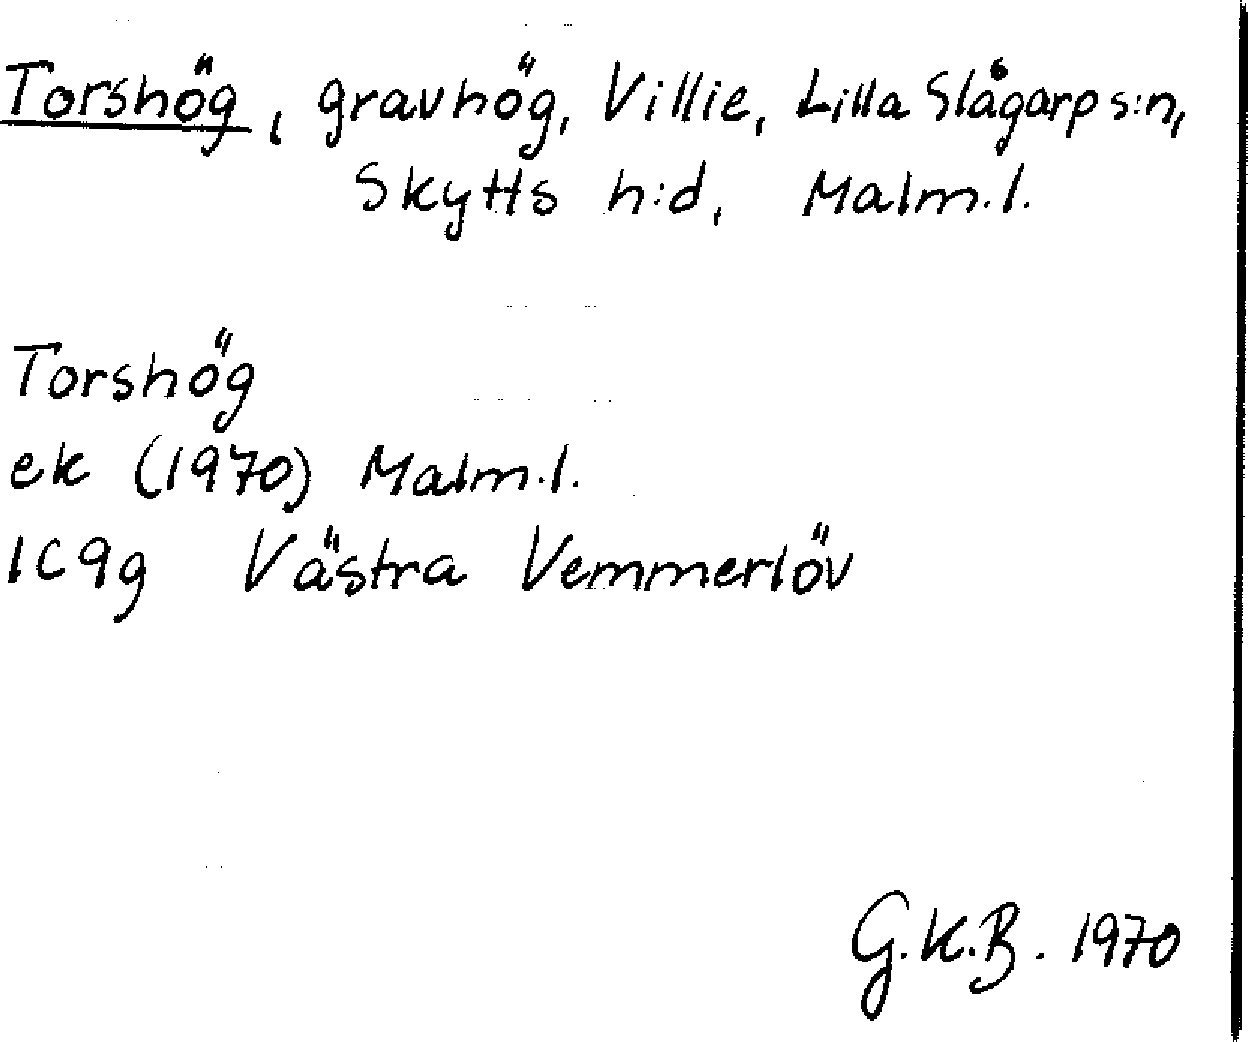 Torshög, gravhög, Villie, Lilla Slågarp s:n,
Skytts h:d, Malm.l.
Torshög
ek (1970) Malm.l.
1C9g Västra Vemmerlöv
G.K.B. 1970